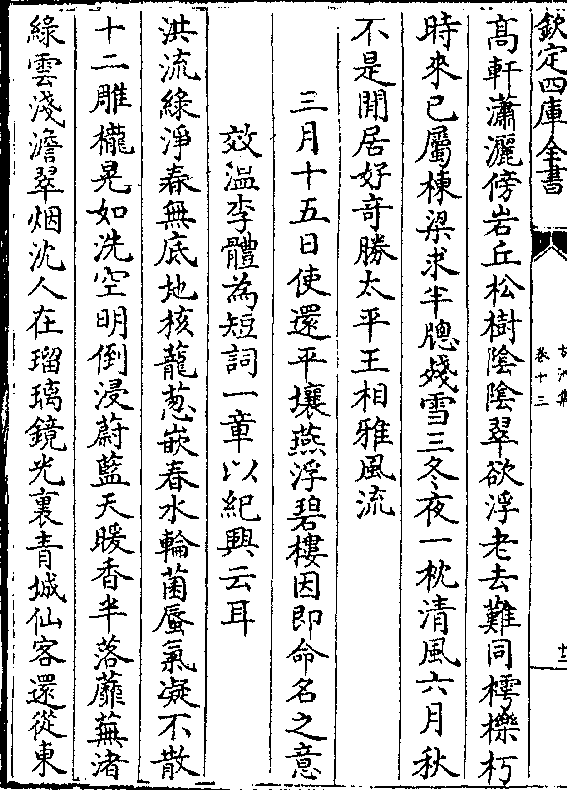 欽定四庫全書
卷十三
高軒瀟灑傍岩丘松樹陰陰翠欲浮老去難同樗櫟朽
時來已屬棟梁求半牕殘雪三冬夜一枕清風六月秋
不是閒居好奇勝太平王相雅風流
三月十五日使還平壤燕浮碧樓因即命名之意
效温李體為短詞一章以紀興云耳
洪流綠淨春無底地核蘢葱嵌春水輪菌蜃氣凝不散
十二雕櫳晃如洗空明倒浸蔚藍天暖香半落蘼蕪渚
綠雲淺澹翠烟沈人在瑠璃鏡光裏青城仙客還從東